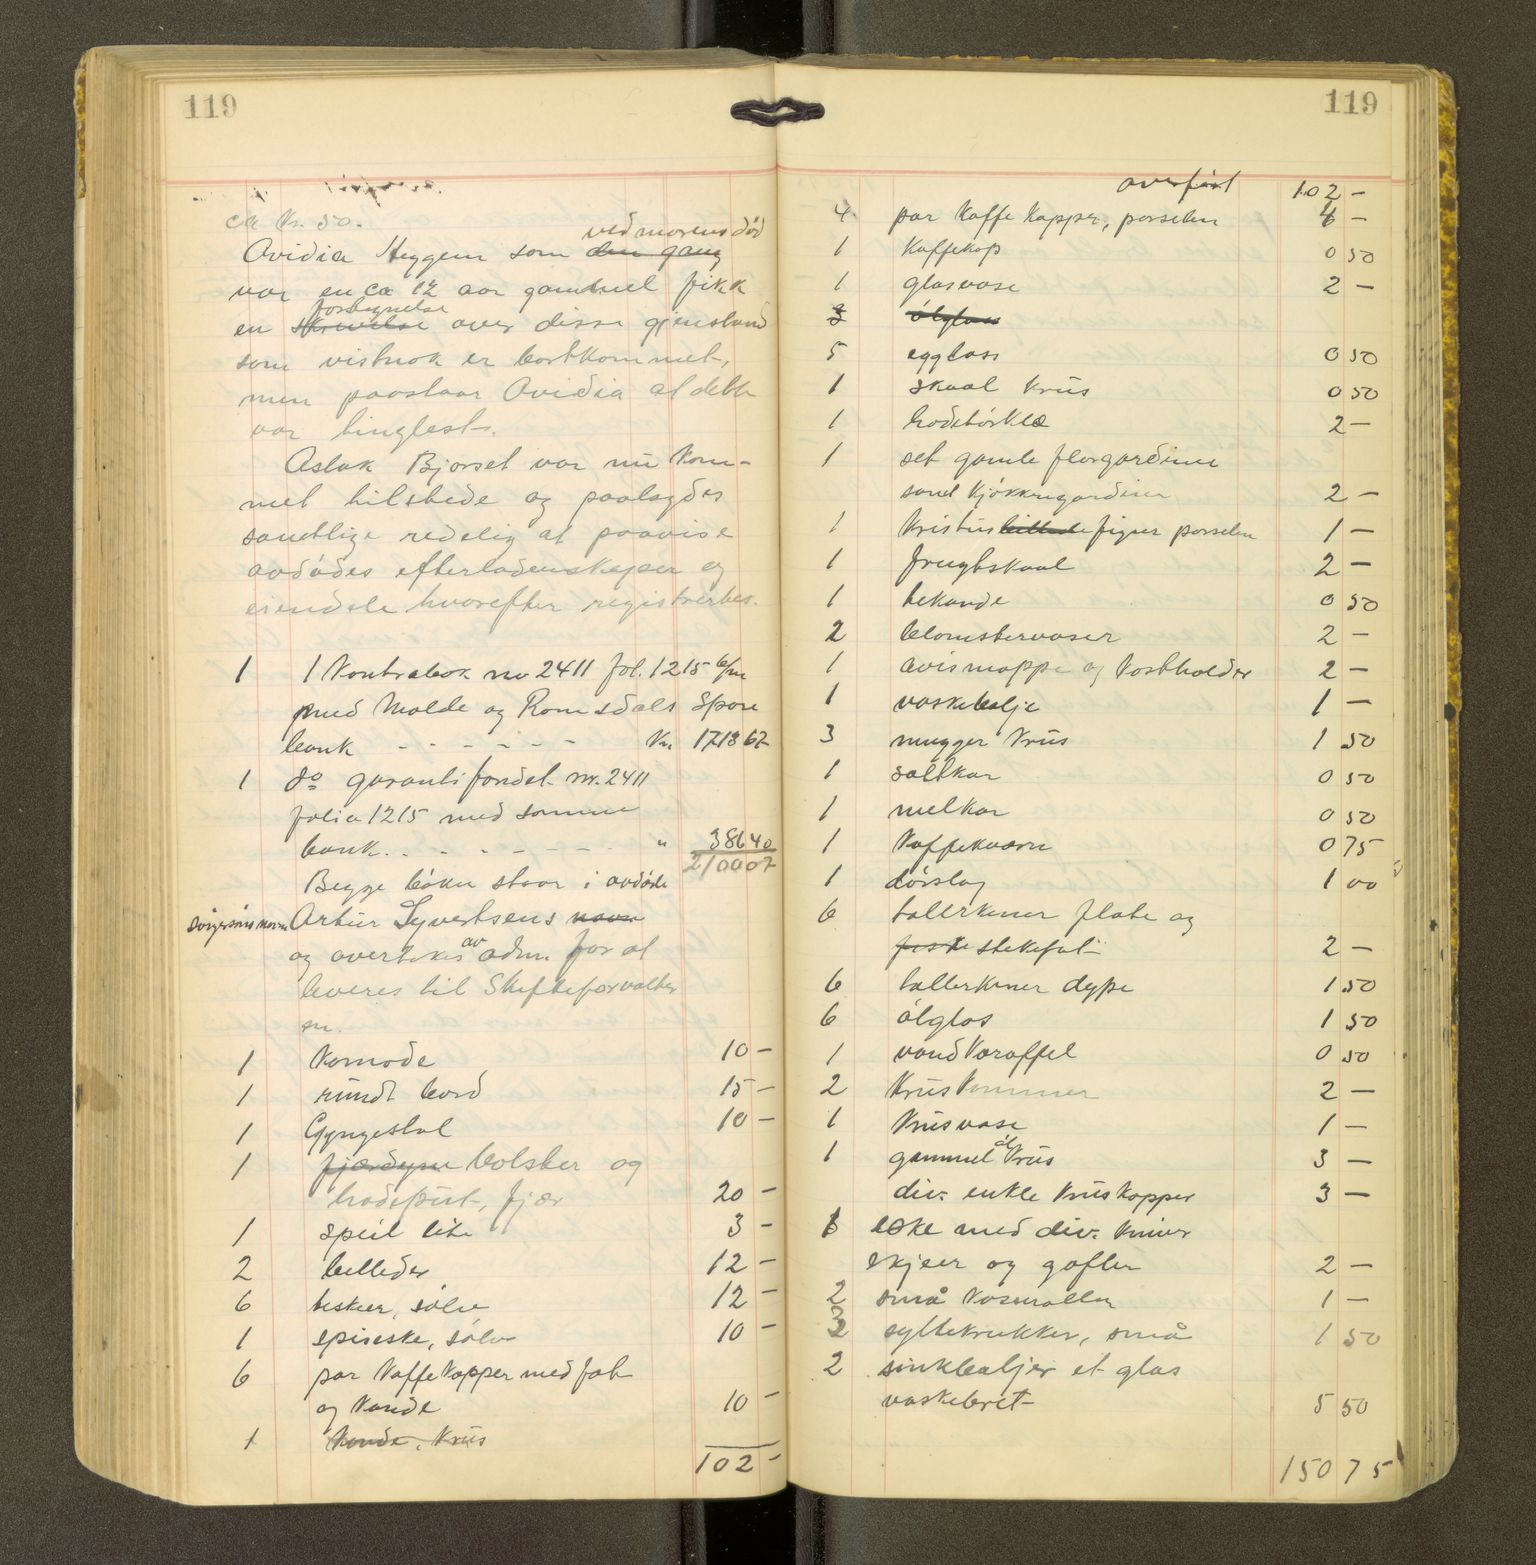 119
ca kr. 50.
ved morens död
Avidia Heggem som den gang
var en ca 12 aar gammel fikk
fortegnelse
en skrivelse over disse gjenstand
som vistnok er bortkommet,
men paastaar Avidia at dette
var tinglest.
Aslak Bjorset var nu kom-
met tilstede og paalagdes
samtlige redelig at paavise
avdödes efterladenskaper og
eiendele hvorefter registrertes.
1 1 Kontrabok no 2411 fol. 1215
med Molde og Romsdals Spare
bank - - - - - - Kr. 1713 67
1 do garantifondet nr. 2411
folie 1215 med samme
bank. - - - - - - " 386 40
2100 07
Begge böker staar i avdöde
Artur Syvertsens navn
og overtokes av adm. for at
leveres til Skifteforvalter
en.
1 Komode 10 -
1 rundt bord 15 -
1 Gyngestol 10 -
1 fjærdyne bolster og
hodeput, fjær 20 -
1 speil lite 3 -
2 billeder 12 -
6 teskier, sölv 12 -
1 spiseske, sölv 10 -
6 par Kaffekopper med fat
og Kande 10 -
1 Kande, Krus
102 -
119
overfört 102 -
4 par Kaffe Kopper, porselen 4 -
1 Kaffekop 0 50
1 glasvase 2 -
3 ölglass
5 egglass 0 50
1 skaal Krus 0 50
1 hodetörkle 2 -
1 set gamle florgardiner
samt Kjökkengardiner 2 -
1 Kristus billede figur porselen 1 -
1 frugtskaal 2 -
1 tekande 0 50
2 blomstervaser 2 -
1 avismappe og Kostholder 2 -
1 vaskebalje 1 -
3 mugger Krus 1 50
1 saltkar 0 50
1 melkar 0 50
1 Kaffekvern 0 75
1 dörslag 1 00
6 tallerkener flate og
stekefat 2 -
6 tallerkener dype 1 50
6 ölglas 1 50
1 vand Karaffel 0 50
2 Krus Kummer 2 -
1 Krusvase 1 -
1 gammel öl Krus 3 -
div. enkle Krus Kopper 3 -
1 eske med div. Kniver
skjeer og gafler 2 -
2 små Kaseroller 1 -
3 syltekrukker, små 1 50
2 sinkbaljer et glas
vaskebret 5 50
150 75